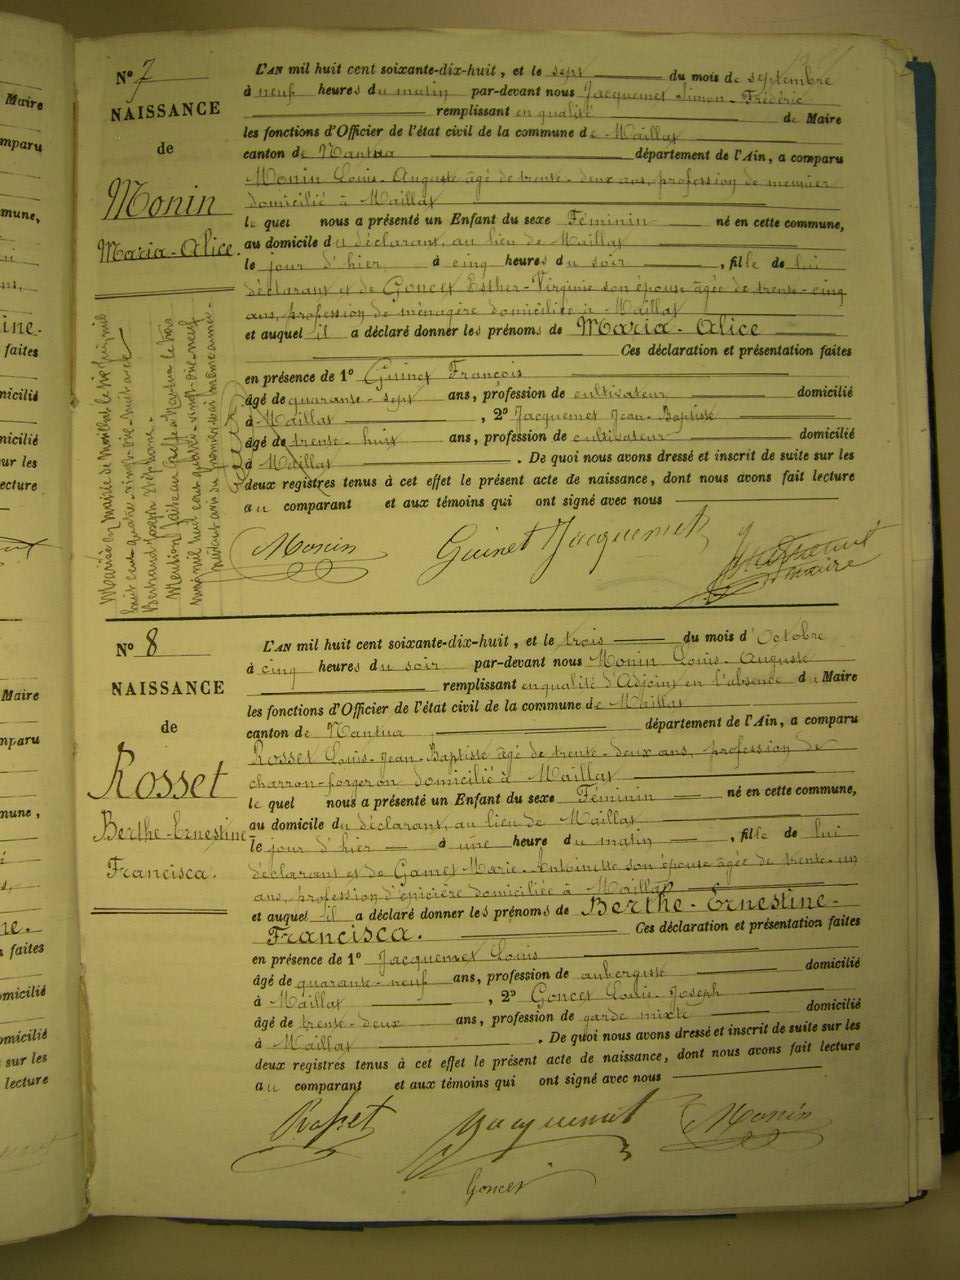 Maire
mparu
mune,
ine.
faites
micilié
miciliė
ur les
ecture
Maire
mparu
mune,
ne.
faites
omicilié
omicilié
sur les
lecture
N° 7
NAISSANCE
de
Monin
Maria-Alice.
L'AN mil huit cent soixante-dix-huit, et le sept du mois de septembre
à neuf heures du matin par-devant nous Jacquemet Simon-Frédéric
remplissant en qualité de Maire
les fonctions d'Officier de l'état civil de la commune de Maillat
canton de Nantua département de l'Ain, a comparu
Monin Louis-Auguste âgé de trente-deux ans, profession de menuier
domicilié à Maillat
le quel nous a présenté un Enfant du sexe Féminin né en cette commune,
au domicile du déclarant, au lieu de Maillat
le jour d'hier à cinq heures du soir, fille de lui
déclarant et de Goncet Esther-Virginie son épouse âgée de trente-cinq
ans, profession de ménagère domiciliée à Maillat
et auquel il a déclaré donner les prénoms de Maria-Alice
Ces déclaration et présentation faites
en présence de 1° Guinet François
âgé de quarante-sept ans, profession de cultivateur domicilié
à Maillat, 2° Jacquemet Jean-Baptiste
âgé de trente-huit ans, profession de cultivateur domicilié
à Maillat. De quoi nous avons dressé et inscrit de suite sur les
deux registres tenus à cet effet le présent acte de naissance, dont nous avons fait lecture
au comparant et aux témoins qui ont signé avec nous
Monin Guinet Jacquemet
maire
Mariée en mairie de Maillat le dix juin mil
huit cent quatre-vingt-dix-huit avec
Bertrand Joseph Stéphane.
Mention faite au Greffe à Nantua le trois
mil huit cent quatre-vingt-dix-neuf
N° 8
NAISSANCE
de
Rosset
Berthe-Ernestine
Francisca.
L'AN mil huit cent soixante-dix-huit, et le trois du mois d'Octobre
à cinq heures du soir par-devant nous Monin Louis-Auguste
remplissant en qualité d'Adjoint en l'absence du Maire
les fonctions d'Officier de l'état civil de la commune de Maillat
canton de Nantua département de l'Ain, a comparu
Rosset Louis-Jean-Baptiste âgé de trente-deux ans, profession de
charron-forgeron domicilié à Maillat
le quel nous a présenté un Enfant du sexe Féminin né en cette commune,
au domicile du déclarant, au lieu de Maillat
le jour d'hier à une heure du matin, fille de lui
déclarant et de Gamet Marie-Antoinette son épouse âgée de trente-un
ans, profession d'épicière domiciliée à Maillat
et auquel il a déclaré donner les prénoms de Berthe-Ernestine-
Francisca. Ces déclaration et présentation faites
en présence de 1° Jacquemet Louis
âgé de quarante-neuf ans, profession de aubergiste domicilié
à Maillat, 2° Goncet Louis-Joseph
âgé de trente-deux ans, profession de garde mixte domicilié
à Maillat. De quoi nous avons dressé et inscrit de suite sur les
deux registres tenus à cet effet le présent acte de naissance, dont nous avons fait lecture
au comparant et aux témoins qui ont signé avec nous
Rosset Jacquemet Monin
Goncet